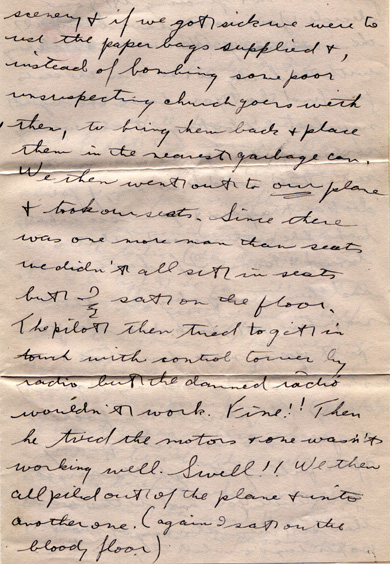 scenery & if we got sick we were to
use the paper bags supplied &,
instead of bombing some poor
unsuspecting church goers with
them, to bring them back & place
them in the nearest garbage can.
We then went out to our plane
& took our seats. Since there
was one more man than seats
we didn't all sit in seats
but I sat on the floor.
The pilot then tried to get in
touch with control tower by
radio but the damned radio
wouldn't work. Fine!! Then
he tried the motors & one wasn't
working well. Swell!! We then
all pild out of the plane & into
another one. (again I sat on the
bloody floor)